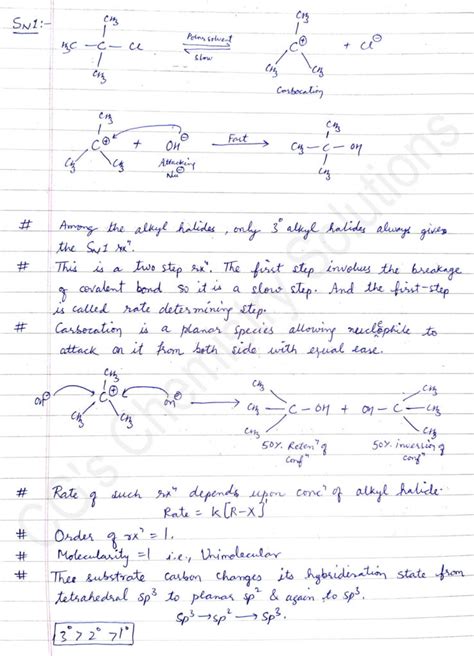 SN1:-
CH₃
H₃C — C — Cl
CH₃
Polar solvent
Slow
CH₃
C⊕ + Cl⊖
CH₃ CH₃
Carbocation
CH₃
C⊕ + OH⊖
CH₃ CH₃
Attacking
Nu⊖
Fast
CH₃
CH₃ — C — OH
CH₃
# Among the alkyl halides, only 3° alkyl halides always gives
the SN1 rxⁿ.
# This is a two step rxⁿ. The first step involves the breakage
of covalent bond so it is a slow step. And the first-step
is called rate determining step.
# Carbocation is a planar species allowing nucleophile to
attack on it from both side with equal ease.
CH₃
OH⊖ C⊕ OH⊖
CH₃ CH₃
CH₃
CH₃ — C — OH + OH — C — CH₃
CH₃
CH₃
CH₃
50% Retenⁿ of
confⁿ
50% inversion of
confⁿ
# Rate of such rxⁿ depends upon concⁿ of alkyl halide.
Rate = k[R-X]
# Order of rxⁿ = 1.
# Molecularity = 1 i.e., Unimolecular
# Thee substrate carbon changes its hybrideration state from
tetrahedral sp³ to planar sp² & again to sp³.
Sp³ → sp² → Sp³.
3° > 2° > 1°
CG's Chemistry Solutions